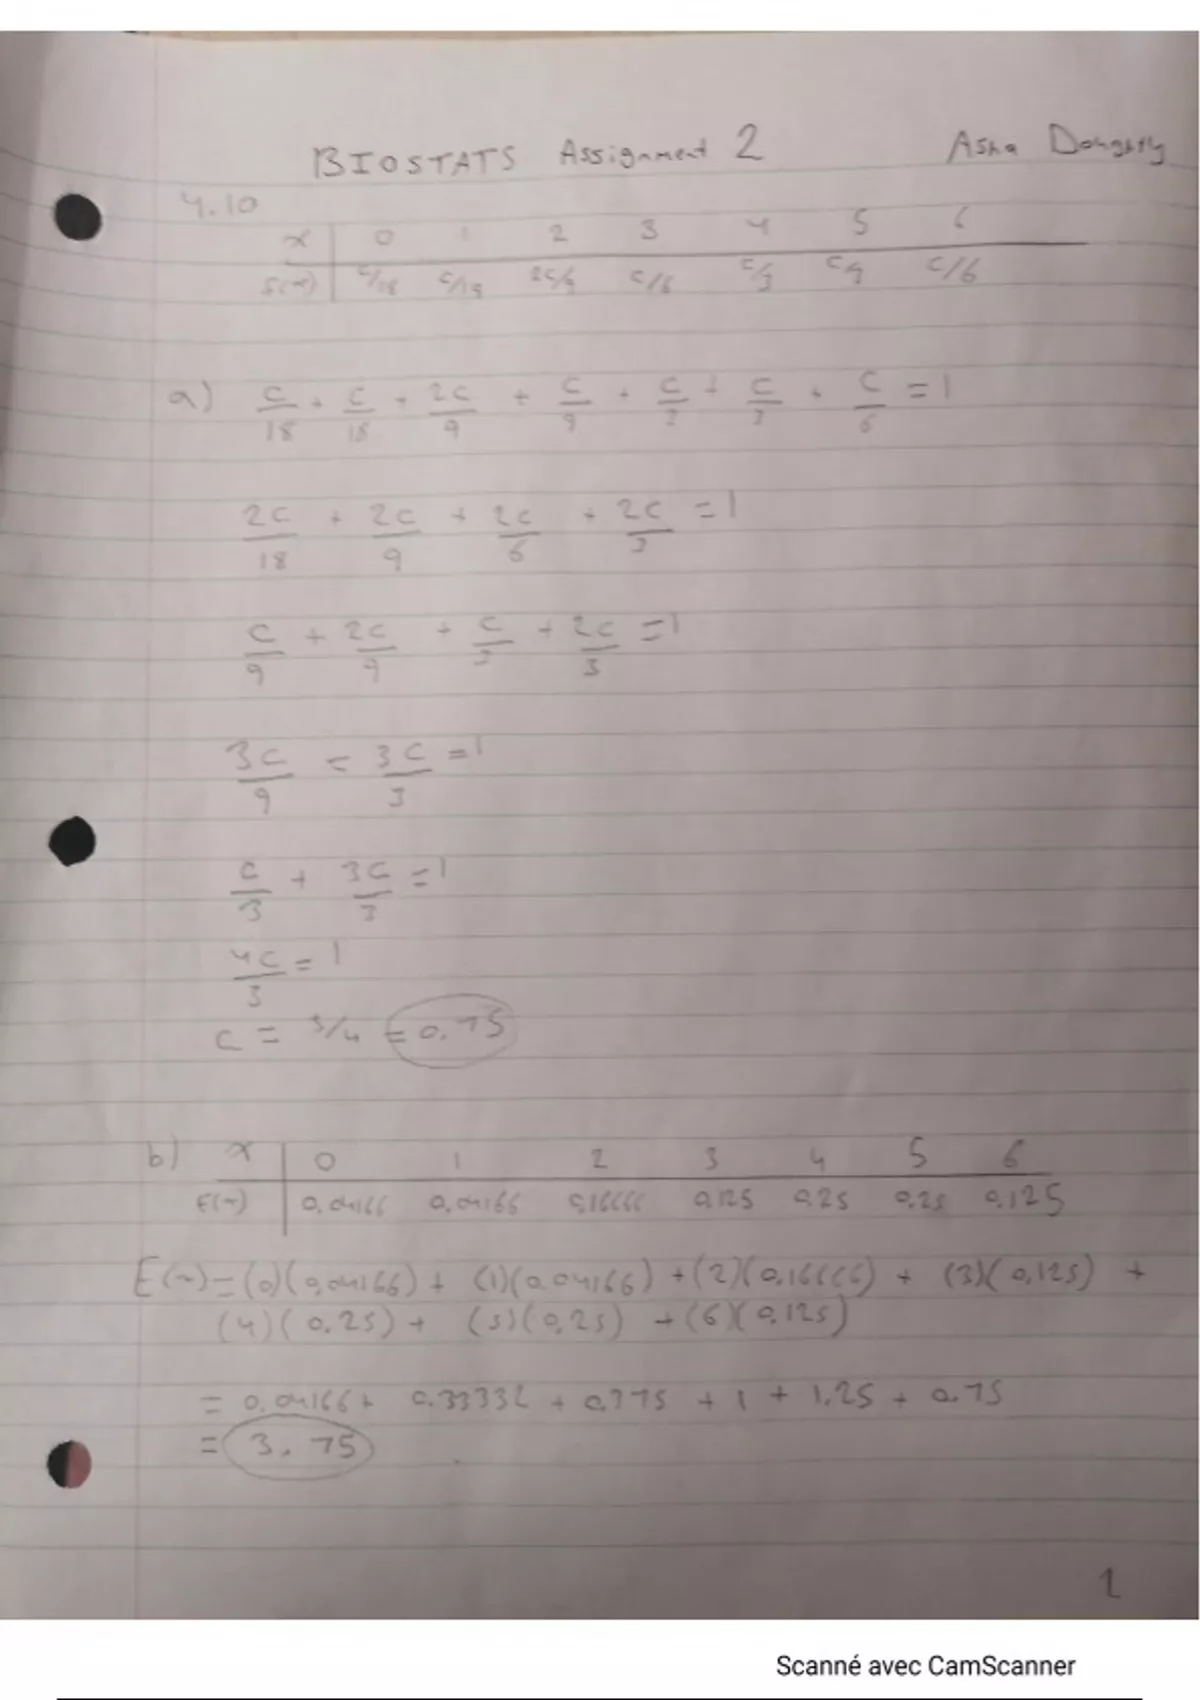 BIOSTATS Assignment 2 Asha
4.10
x 0 1 2 3 4 5 6
f(x) c/18 c/18 2c/9 c/6 c/3 c/6
a) c/18 + c/18 + 2c/9 + c/9 + c/3 + c/3 + c/6 = 1
2c/18 + 2c/9 + 2c/6 + 2c/3 = 1
c/9 + 2c/9 + c/3 + 2c/3 = 1
3c/9 = 3c/3 = 1
c/3 + 3c/3 = 1
4c/3 = 1
c = 3/4 = 0.75
b) x 0 1 2 3 4 5 6
f(x) 0,04166 0,04166 0,16666 0,125 0,25 0,25 0,125
E(x) = (0)(0,04166) + (1)(0.04166) + (2)(0,16666) + (3)(0,125) +
(4)(0.25) + (5)(0,25) + (6)(0,125)
= 0,04166 + 0.33332 + 0,375 + 1 + 1.25 + 0.75
= 3.75
1
Scanné avec CamScanner